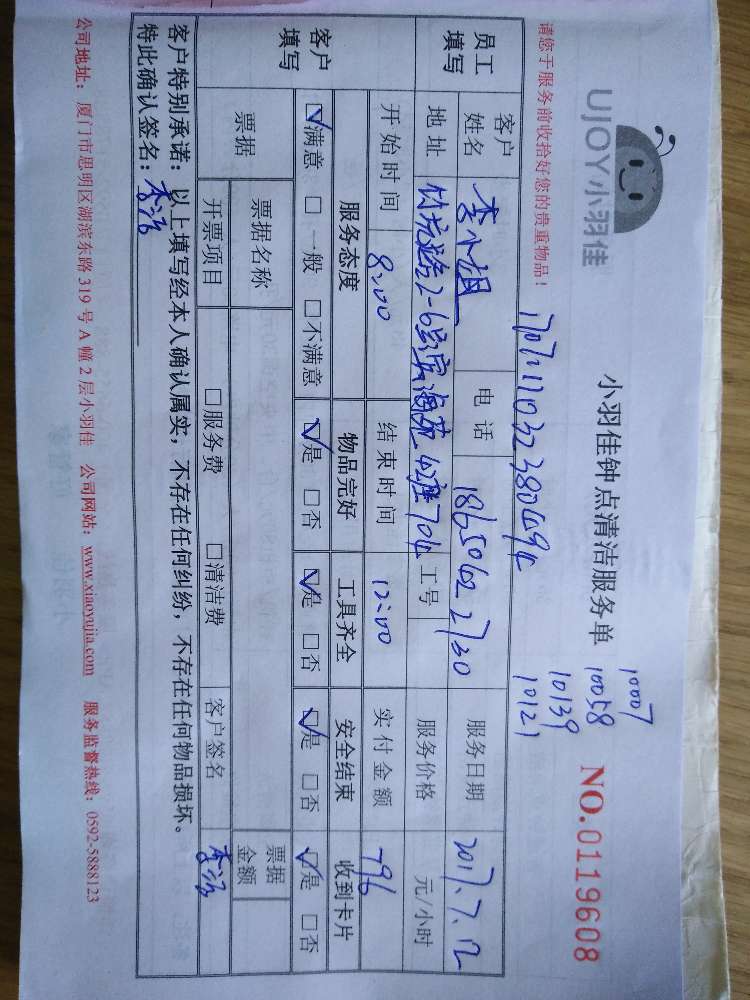 UJOY小羽佳
小羽佳钟点清洁服务单
10007
10058
10139
10121
NO.0119608
请您于服务前收拾好您的贵重物品！
员工填写
客户姓名 李小姐 电话 18650422720 服务日期 2017.7.12
地址 2-6号 42 704 工号 服务价格 元/小时
开始时间 8:00 结束时间 12:00 实付金额 796
客户填写
服务态度 物品完好 工具齐全 安全结束 收到卡片
☑满意 □一般 □不满意 ☑是 □否 ☑是 □否 ☑是 □否 ☑是 □否
票据 票据名称 票据金额
开票项目 □服务费 □清洁费 客户签名
客户特别承诺：以上填写经本人确认属实，不存在任何纠纷，不存在任何物品损坏。
特此确认签名：
公司地址：厦门市思明区湖滨东路 319 号 A 幢 2 层小羽佳 公司网站：www.xiaoyujia.com 服务监督热线：0592-5888123